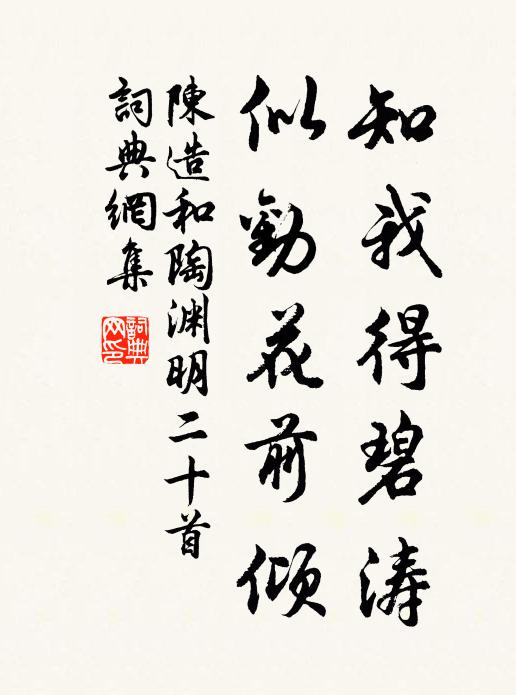 知我得碧濤
似勸花前傾
陳造和陶渊明二十首
詞典網集
詞典网印